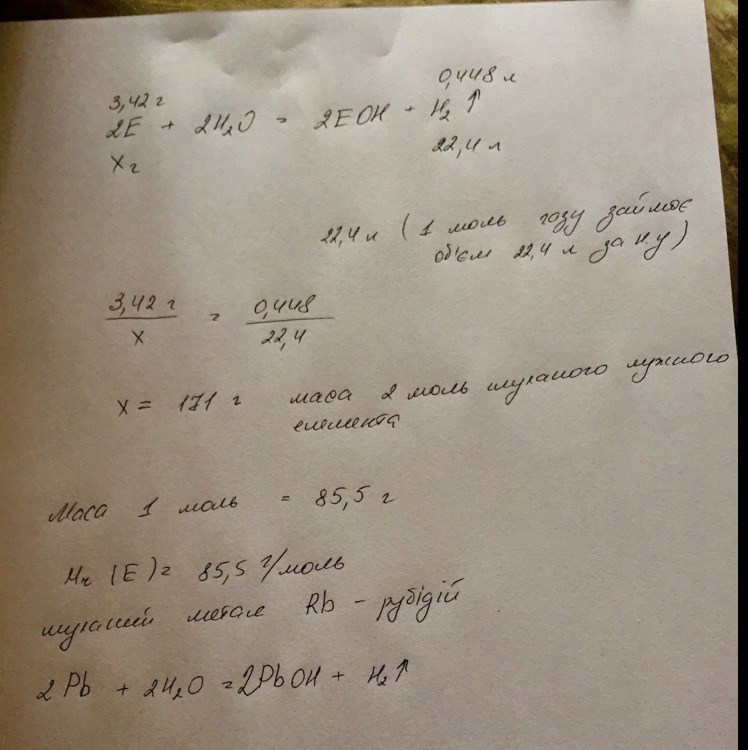 0,448 л
3,42 г
2E + 2H₂O = 2EOH + H₂↑
X г
22,4 л
22,4 л (1 моль газу займає
об'єм 22,4 л за н.у)
3,42 г / X = 0,448 / 22,4
X = 171 г маса 2 моль шуканого лужного
елемента
Маса 1 моль = 85,5 г
Mr (E) = 85,5 г/моль
шуканий метал Rb - рубідій
2Pb + 2H₂O = 2PbOH + H₂↑